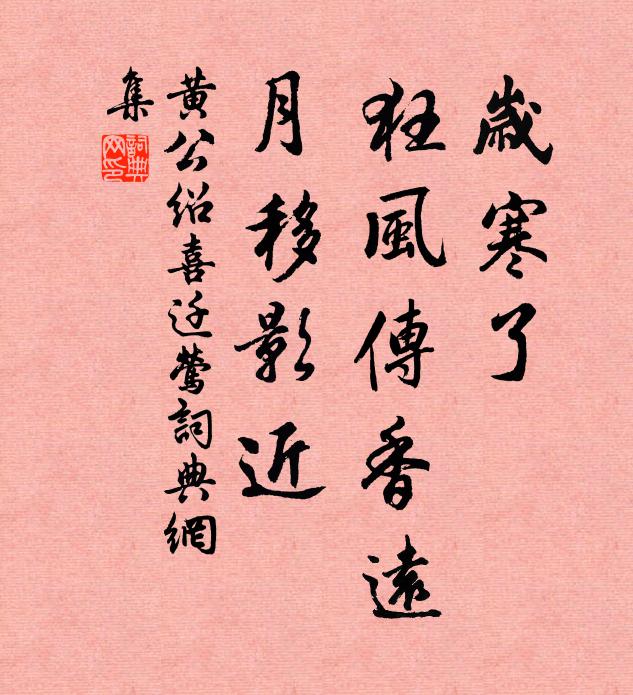 歲寒了
狂風傳香遠
月移影近
黃公绍喜迁鶯詞典網
集
詞典
网印